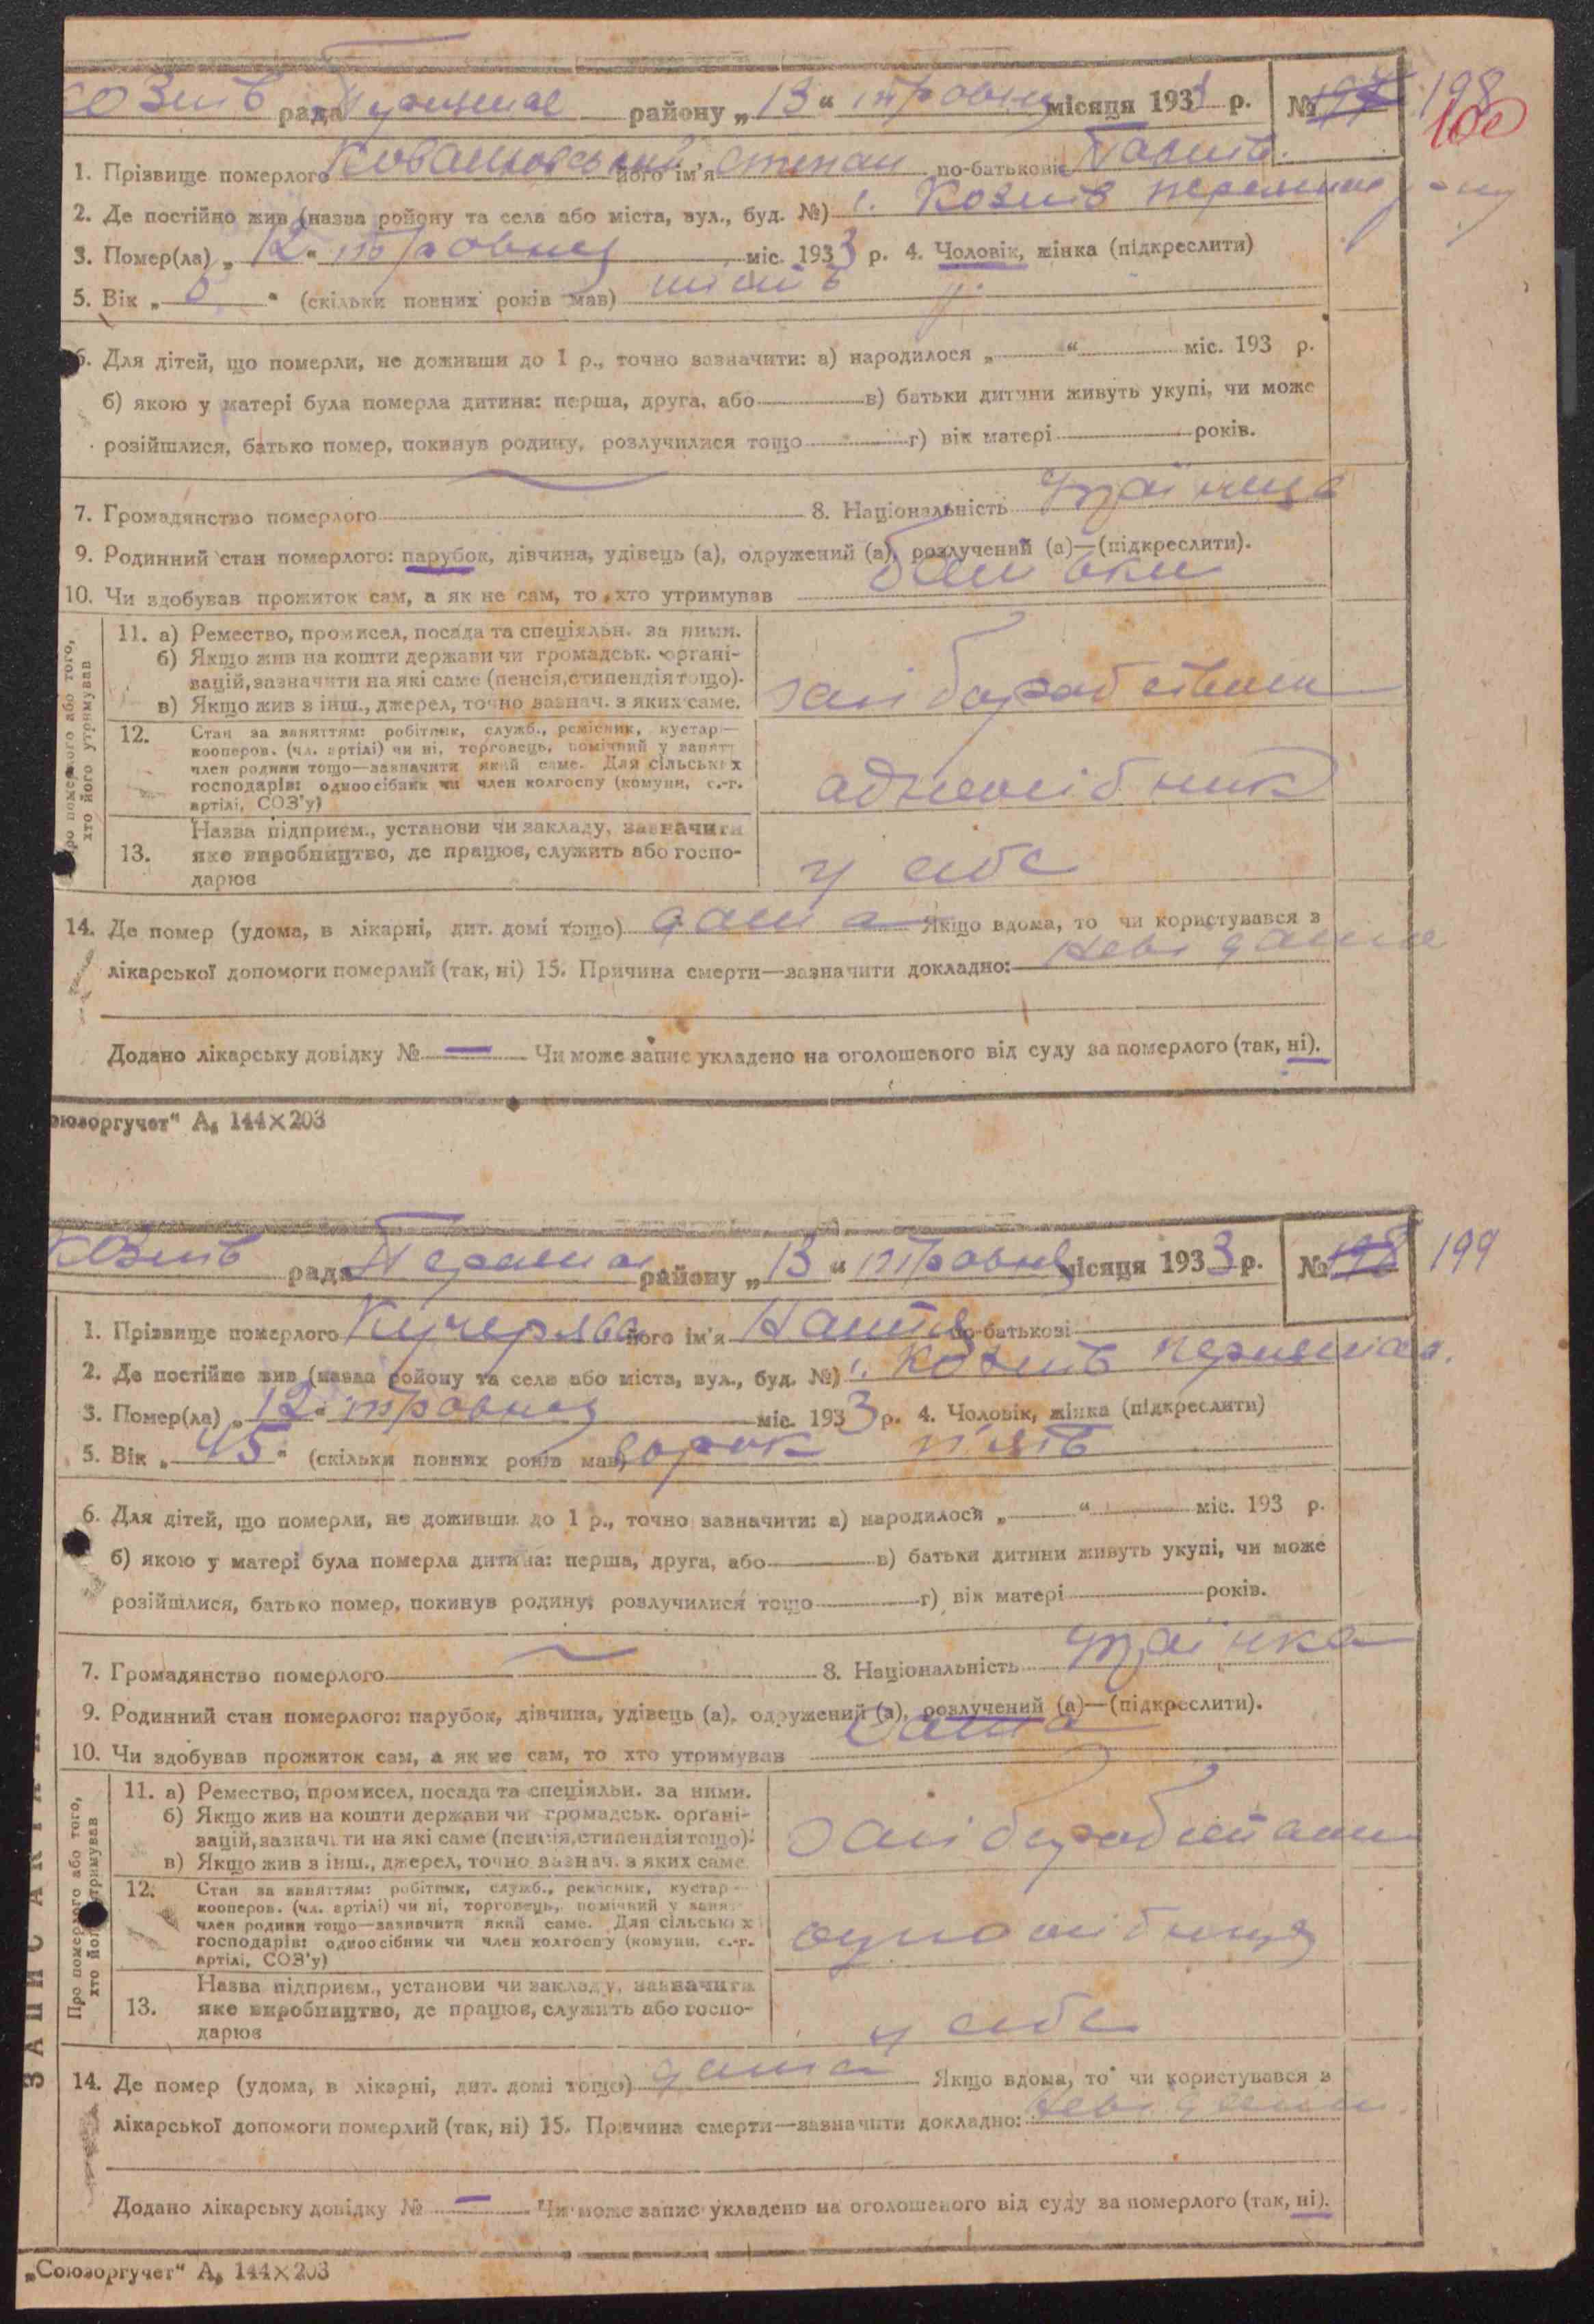 рада района „13“ травня місяця 1933 р. № 197 198
100
1. Прізвище померлого Ковальовський його ім'я Степан по-батькові
2. Де постійно жив (назва району та села або міста, вул., буд. №) с. Козлів
3. Помер(ла) „12“ травня міс. 1933 р. 4. Чоловік, жінка (підкреслити)
5. Вік „ “ (скільки повних років мав)
6. Для дітей, що померли, не доживши до 1 р., точно зазначити: а) народилося „ “ міс. 193 р.
б) якою у матері була померла дитина: перша, друга, або в) батьки дитини живуть укупі, чи може
розійшлися, батько помер, покинув родину, розлучилися тощо г) вік матері років.
7. Громадянство померлого 8. Національність
9. Родинний стан померлого: парубок, дівчина, удівець (а), одружений (а), розлучений (а)—(підкреслити).
10. Чи здобував прожиток сам, а як не сам, то хто утримував батьки
Про померлого або того, хто його утримував
11. а) Ремество, промисел, посада та спеціяльн. за ними.
б) Якщо жив на кошти держави чи громадськ. органі-
зацій, зазначити на які саме (пенсія, стипендія тощо).
в) Якщо жив з інш., джерел, точно зазнач. з яких саме.
12. Стан за заняттям: робітник, служб., ремісник, кустар—
кооперов. (чл. артілі) чи ні, торговець, помічний у занятт
член родини тощо—зазначити який саме. Для сільських
господарів: одноосібник чи член колгоспу (комуни, с.-г.
артілі, СОЗ'у)
адноосібник
13. Назва підприєм., установи чи закладу, зазначити
яке виробництво, де працює, служить або госпо-
дарює
у себе
14. Де помер (удома, в лікарні, дит. домі тощо) дома Якщо вдома, то чи користувався з
лікарської допомоги померлий (так, ні) 15. Причина смерти—зазначити докладно:
Додано лікарську довідку № — Чи може запис укладено на оголошеного від суду за померлого (так, ні).
оюзоргучет" А₅ 144×203
рада району „13“ травня місяця 1933 р. № 198 199
1. Прізвище померлого Кучерява його ім'я Настя по-батькові
2. Де постійно жив (назва району та села або міста, вул., буд. №) с. Козлів
3. Помер(ла) „12“ травня міс. 1933 р. 4. Чоловік, жінка (підкреслити)
5. Вік „45“ (скільки повних років мав) сорок п'ять
6. Для дітей, що померли, не доживши до 1 р., точно зазначити: а) народилося „ “ міс. 193 р.
б) якою у матері була померла дитина: перша, друга, або в) батьки дитини живуть укупі, чи може
розійшлися, батько помер, покинув родину, розлучилися тощо г) вік матері років.
7. Громадянство померлого 8. Національність
9. Родинний стан померлого: парубок, дівчина, удівець (а), одружений (а), розлучений (а)—(підкреслити).
10. Чи здобував прожиток сам, а як не сам, то хто утримував сама
Про померлого або того, хто його утримував
11. а) Ремество, промисел, посада та спеціяльн. за ними.
б) Якщо жив на кошти держави чи громадськ. органі-
зацій, зазначити на які саме (пенсія, стипендія тощо).
в) Якщо жив з інш., джерел, точно зазнач. з яких саме
12. Стан за заняттям: робітник, служб., ремісник, кустар—
кооперов. (чл. артілі) чи ні, торговець, помічний у занят
член родини тощо—зазначити який саме. Для сільських
господарів: одноосібник чи член колгоспу (комуни, с.-г.
артілі, СОЗ'у)
одноосібниця
13. Назва підприєм., установи чи закладу, зазначити
яке виробництво, де працює, служить або госпо-
дарює
у себе
14. Де помер (удома, в лікарні, дит. домі тощо) дома Якщо вдома, то чи користувався з
лікарської допомоги померлий (так, ні) 15. Причина смерти—зазначити докладно:
Додано лікарську довідку № — Чи може запис укладено на оголошеного від суду за померлого (так, ні).
„Союзоргучет" А₅ 144×203